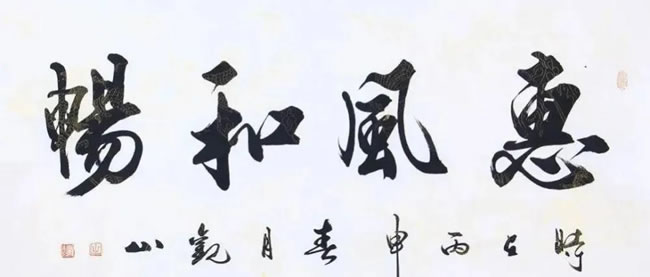 惠風和暢
時在丙申春月觀山